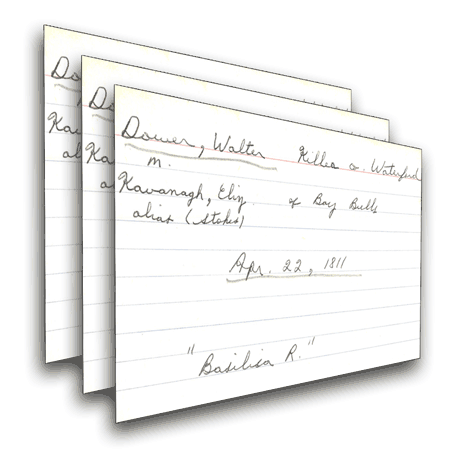 Dower, Walter Killea Co. Waterford
m.
Kavanagh, Eliz. of Bay Bulls
alias (Stokes)
Apr. 22, 1811
"Basilica R."